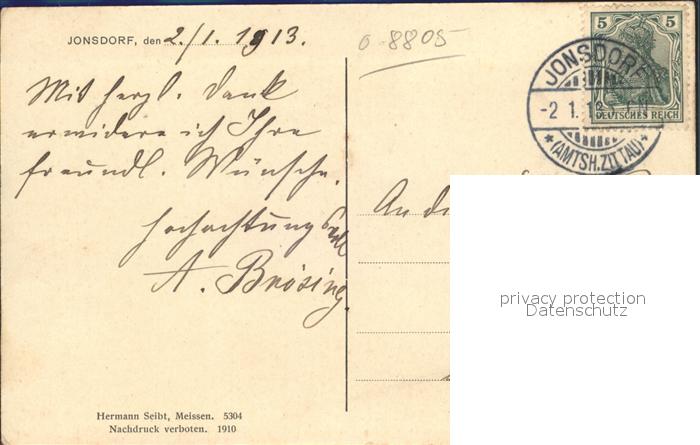 JONSDORF, den 2/1. 1913.
o-8805
5 5
DEUTSCHES REICH
JONSDORF
-2 1.
*(AMTSH. ZITTAU)*
Mit herzl. Dank
erwidere ich Ihre
freundl. Wünsche.
Hochachtungsvoll
A. Brösing.
An
privacy protection
Datenschutz
Hermann Seibt, Meissen. 5304
Nachdruck verboten. 1910